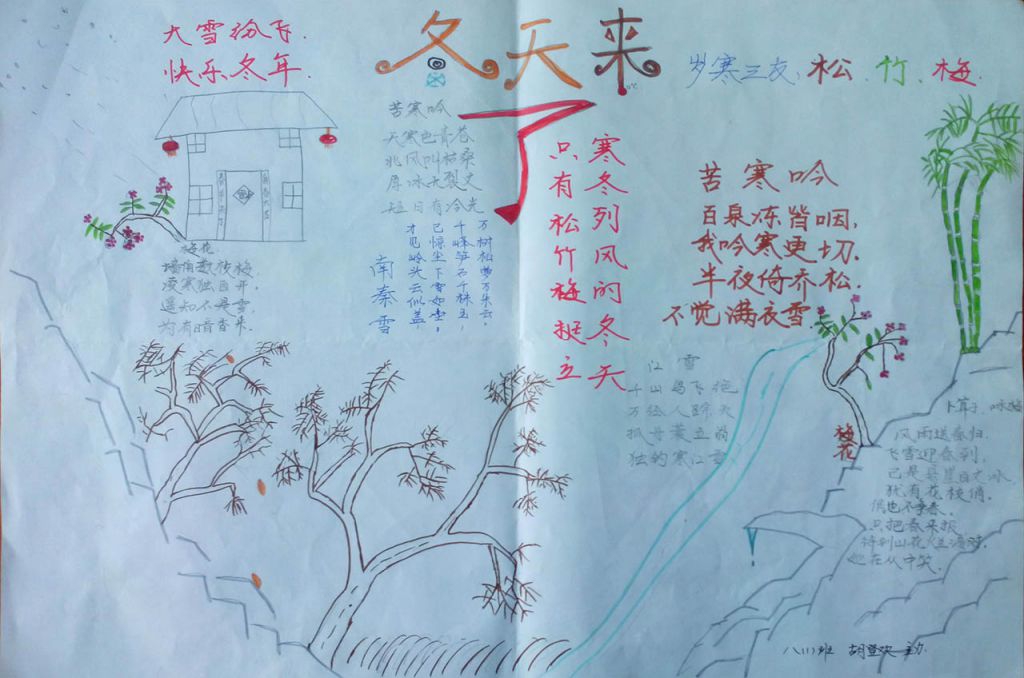 冬天来了
大雪纷飞.
快乐冬年.
岁寒三友、松、竹、梅.
苦寒吟
天寒色青苍
北风叫枯桑
厚冰无裂文
短日有冷光
寒冬列风的冬天
只有松竹梅挺立
苦寒吟
百泉冻皆咽,
我吟寒更切.
半夜倚乔松.
不觉满衣雪.
万树松萝万朵云,
千峰笋石千株玉,
已惊尘下雪如尘.
才见岭头云似盖,
南秦雪
梅花
墙角数枝梅.
凌寒独自开,
遥知不是雪,
为有暗香来.
江雪
千山鸟飞绝
万径人踪灭
孤舟蓑立翁
独钓寒江雪
梅花
卜算子.咏梅
风雨送春归.
飞雪迎春到,
已是悬崖百丈冰
犹有花枝俏.
俏也不争春.
只把春来报
待到山花烂漫时.
她在从中笑.
八(1)班 胡